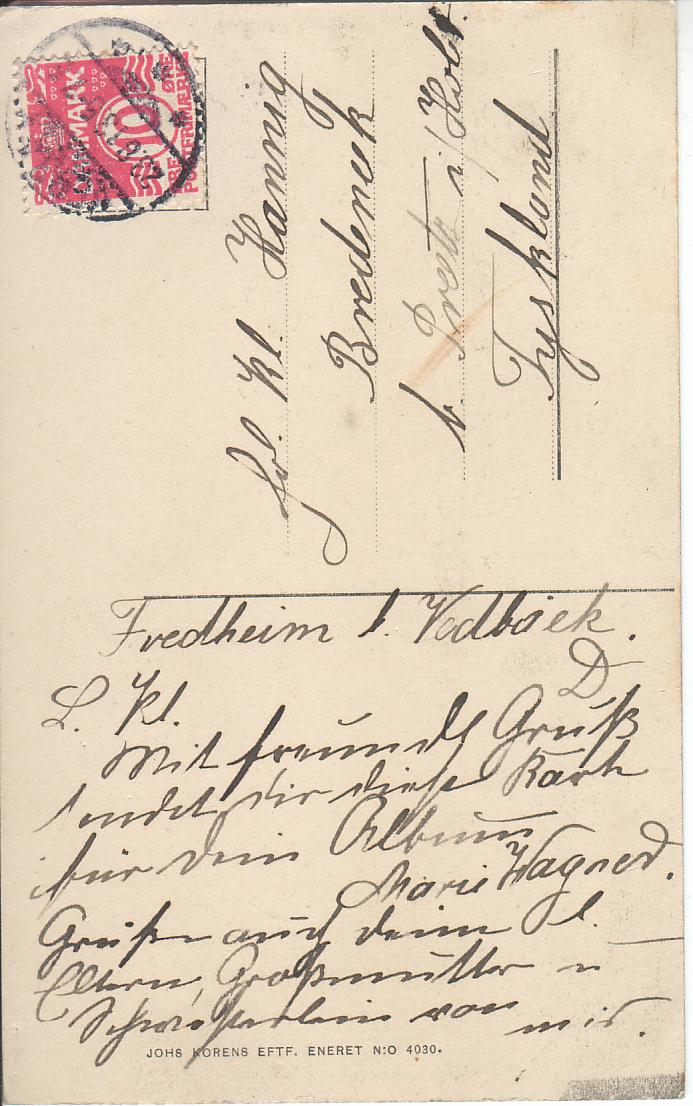 DANMARK
10
ØRE
POSTFRIMÆRKE
Frl. Kl. Hannig
Bredeneek
b. Preetz i/Holst.
Tyskland
Fredheim b. Vedbæk.
D
L. Kl.
Mit freundl Gruß
sendet dir diese Karte
für dein Album
Marie Wagner.
Grüße auch deine l.
Eltern, Großmutter u
Schwesterlein von mir.
JOHS KORENS EFTF. ENERET N:O 4030.